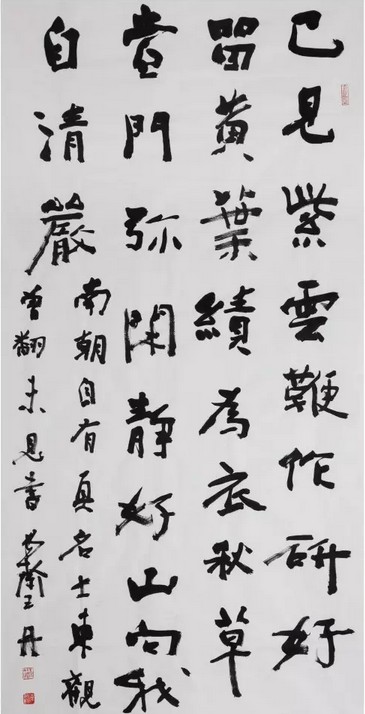 已見紫雲鞭作研好
留黄葉績為衣秋草
當門弥閑靜好山向我
自清嚴
南朝自有真名士東觀
曾翻未見書王丹